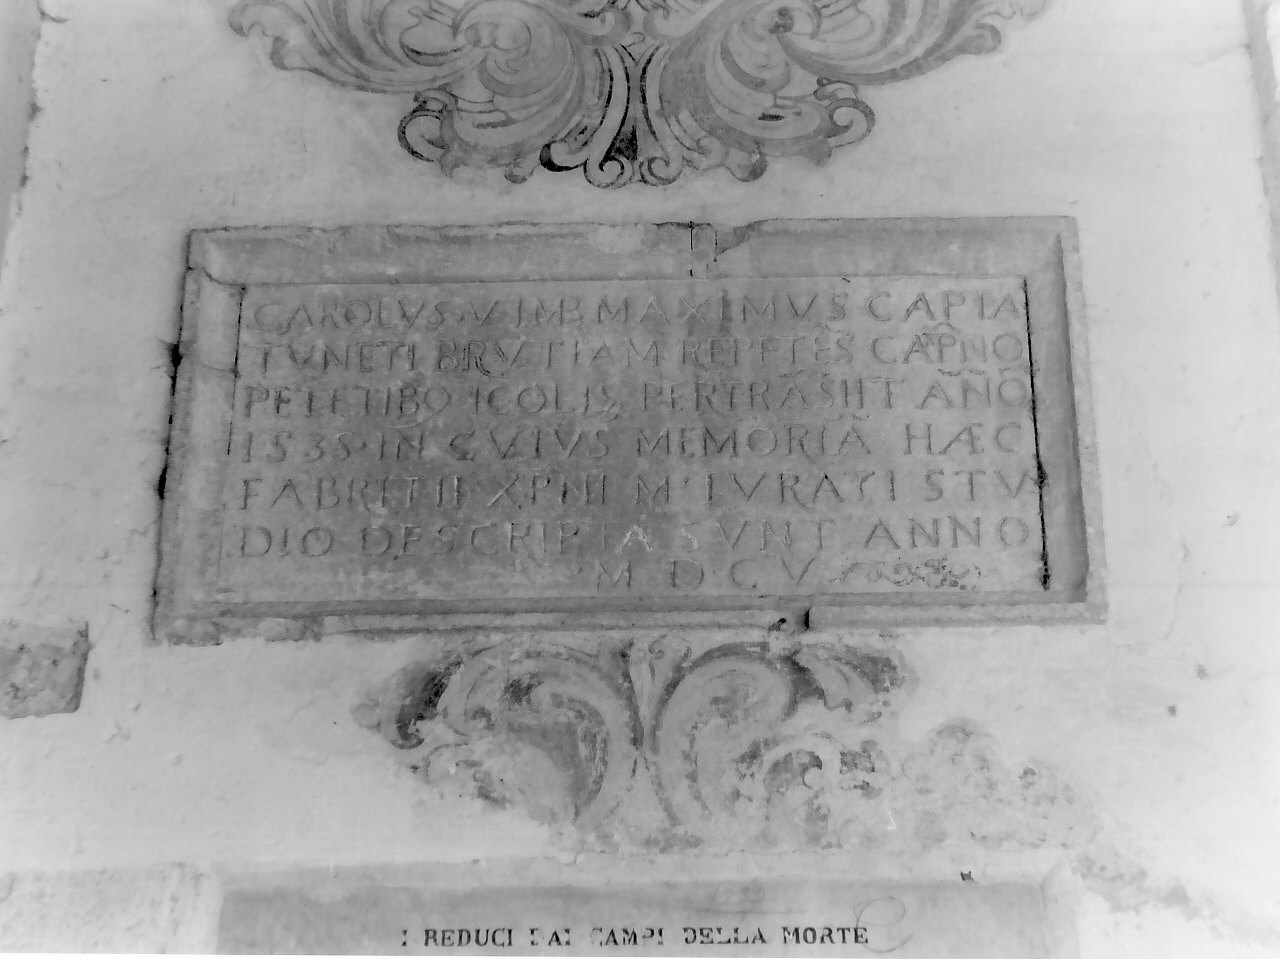 CAROLVS V IMP MAXIMVS CAPIA
TVNETI BRVTIAM REPETĒS CAP̄NO
PETĒTIBꝰ ICOLIS PERTRĀSIIT AÑO
1535 IN CVIVS MEMORIA HÆC
FABRITII XPNI M I IVRATI STV
DIO DESCRIPTA SVNT ANNO
M D C V
I REDUCI DAI CAMPI DELLA MORTE